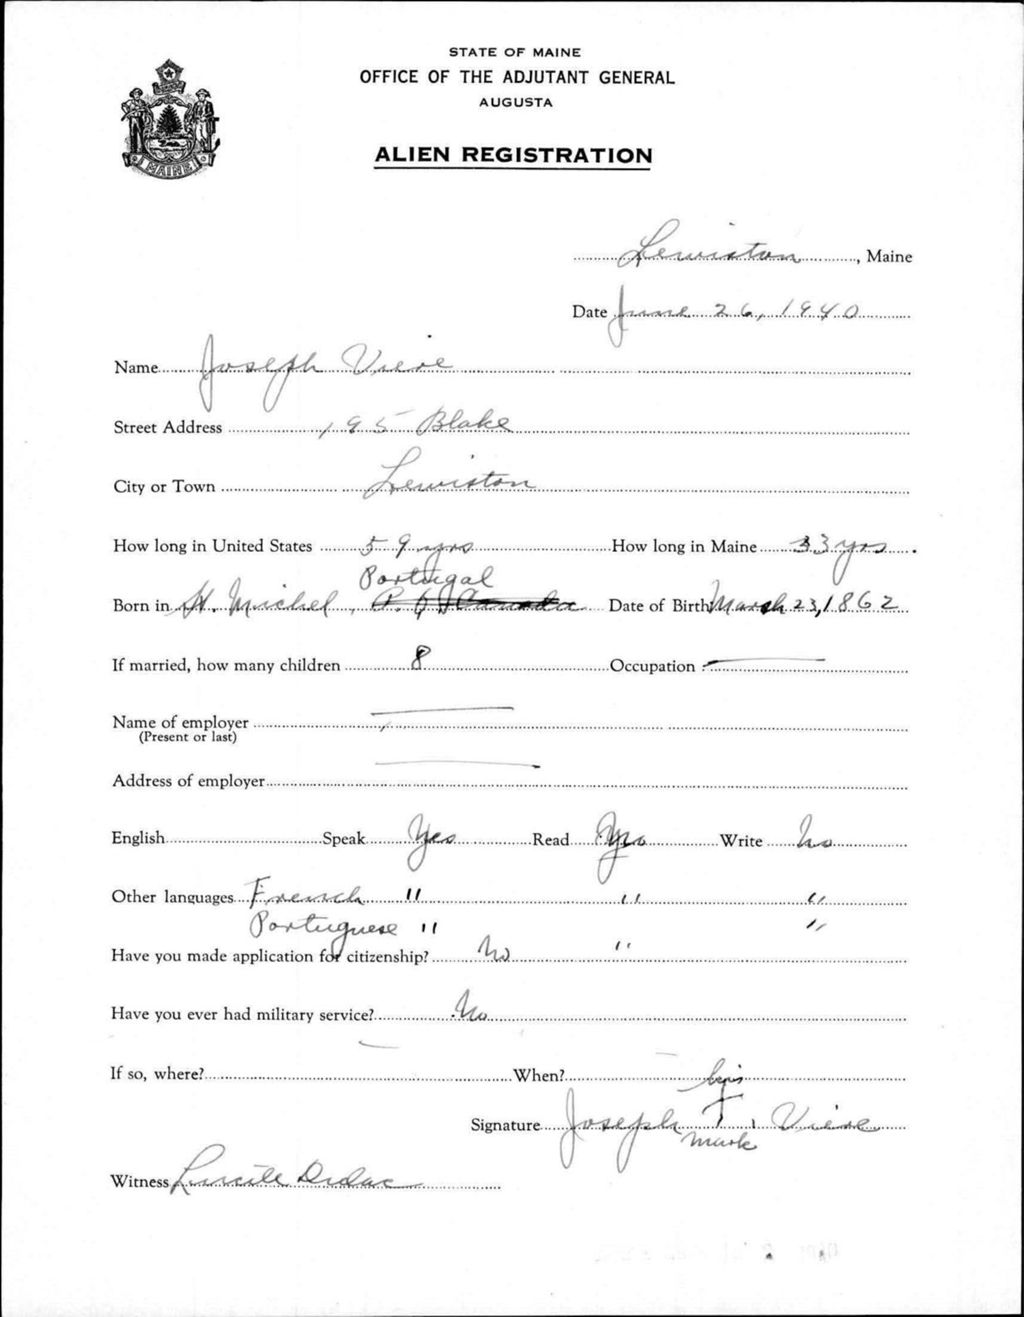 STATE OF MAINE
OFFICE OF THE ADJUTANT GENERAL
AUGUSTA
ALIEN REGISTRATION
MAINE
Lewiston, Maine
Date June 26, 1940
Name Joseph Viere
Street Address 195 Blake
City or Town Lewiston
How long in United States 59 yrs How long in Maine 33 yrs.
Portugal
Born in St. Michel, P. Q. Canada Date of Birth March 23, 1862
If married, how many children 8 Occupation —
Name of employer —
(Present or last)
Address of employer —
English Speak Yes Read Yes Write No
Other languages French " " "
Portuguese " "
Have you made application for citizenship? No "
Have you ever had military service? No
If so, where? — When? —
his
Signature Joseph Viere
mark
Witness Lucille